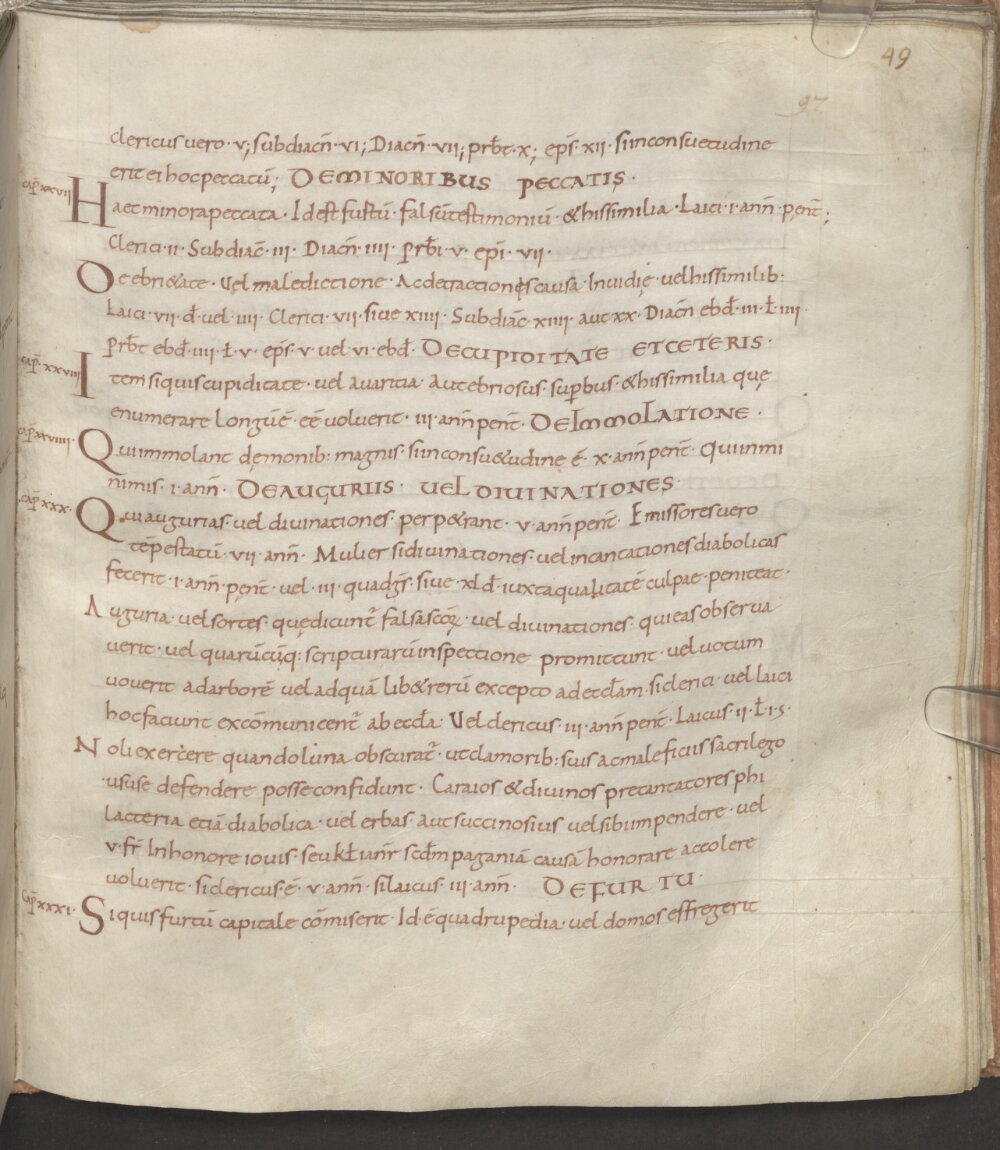 49
97
clericus vero · v; subdiacn̄ · vi; Diacn̄ · vii; prb̄t · x; ep̄s · xii · si in consuetudine
erit ei hoc peccatū; DE MINORIBUS PECCATIS ·
cap̄ xxvii Haec minora peccata · Id est fustū · falsū testimoniū · & his similia · Laici · i · ann̄ · penit̄;
Clerici · ii · Subdiac̄ · iii · Diacn̄ · iiii · prb̄i · v · ep̄i · vii ·
De ebri&ate · Vel maledictione · Ac detractionis causa · Invidię · vel his similib:
Laici · vii · d̄ · vel · iiii · Clerici · vii · sive xiiii · Subdiac̄ · xiiii · aut xx · Diacn̄ ebd̄ · iii · ł · iiii ·
prb̄t ebd̄ · iiii · ł · v · ep̄s · v · vel · vi · ebd̄ · DE CUPIDITATE ET CETERIS ·
cap̄ xxviii Item si quis cupiditate · vel avaritia · Aut ebriosus · sup̄bus · & his similia quę
enumerare longū ē · eē voluerit · iii · ann̄ penit̄ · DE ImmoLATIONE ·
cap̄ xxviiii · Qui immolant dęmonib: magnis · si in consu&udine ē · x · ann̄ penit̄ · Qui in mi
nimis · i · ann̄ · DE AUGURIIS · VEL DIVINATIONES ·
cap̄ xxx · Qui augurias · vel divinationes · perp&rant · v · ann̄ penit̄ · Emissores vero
tēpestatū · vii · ann̄ · Mulier si divinationes · vel incantationes diabolicas
fecerit · i · ann̄ penit̄ · vel · iii · quadgs̄ · sive · xl d̄ · iuxta qualitatē culpae · peniteat ·
Auguria · vel sortes · quę dicunt̄ falsa scōꝝ · vel divinationes · qui eas observa
verit · vel quarūcūq: scripturarū inspectione promittunt · vel votum
voverit ad arborē vel ad quā lib& rerū excepto ad eccłam · si clerici · vel laici
hoc faciunt excōmunicent̄ ab eccła · Vel clericus · iii · ann̄ penit̄ · Laicus · ii · ł · i · s ·
Noli exercere quando luna obscurat̄ · ut clamorib: suis ac maleficiis sacrilego
· usu se defendere posse confidunt · Caraios & divinos precantatores phi
lacteria etiā diabolica · vel erbas · aut succinos ius vel sibi impendere · vel
v · fr̄ In honore iovis · seu kł ianr̄ scd̄m paganiā causā honorare ac colere
voluerit · si clericus ē · v · ann̄ · si laicus · iii · ann̄ · DE FURTU ·
Cap̄ xxxi · Si quis furtū capitale cōmiserit · Id · ē quadrupedia · vel domos effregerit